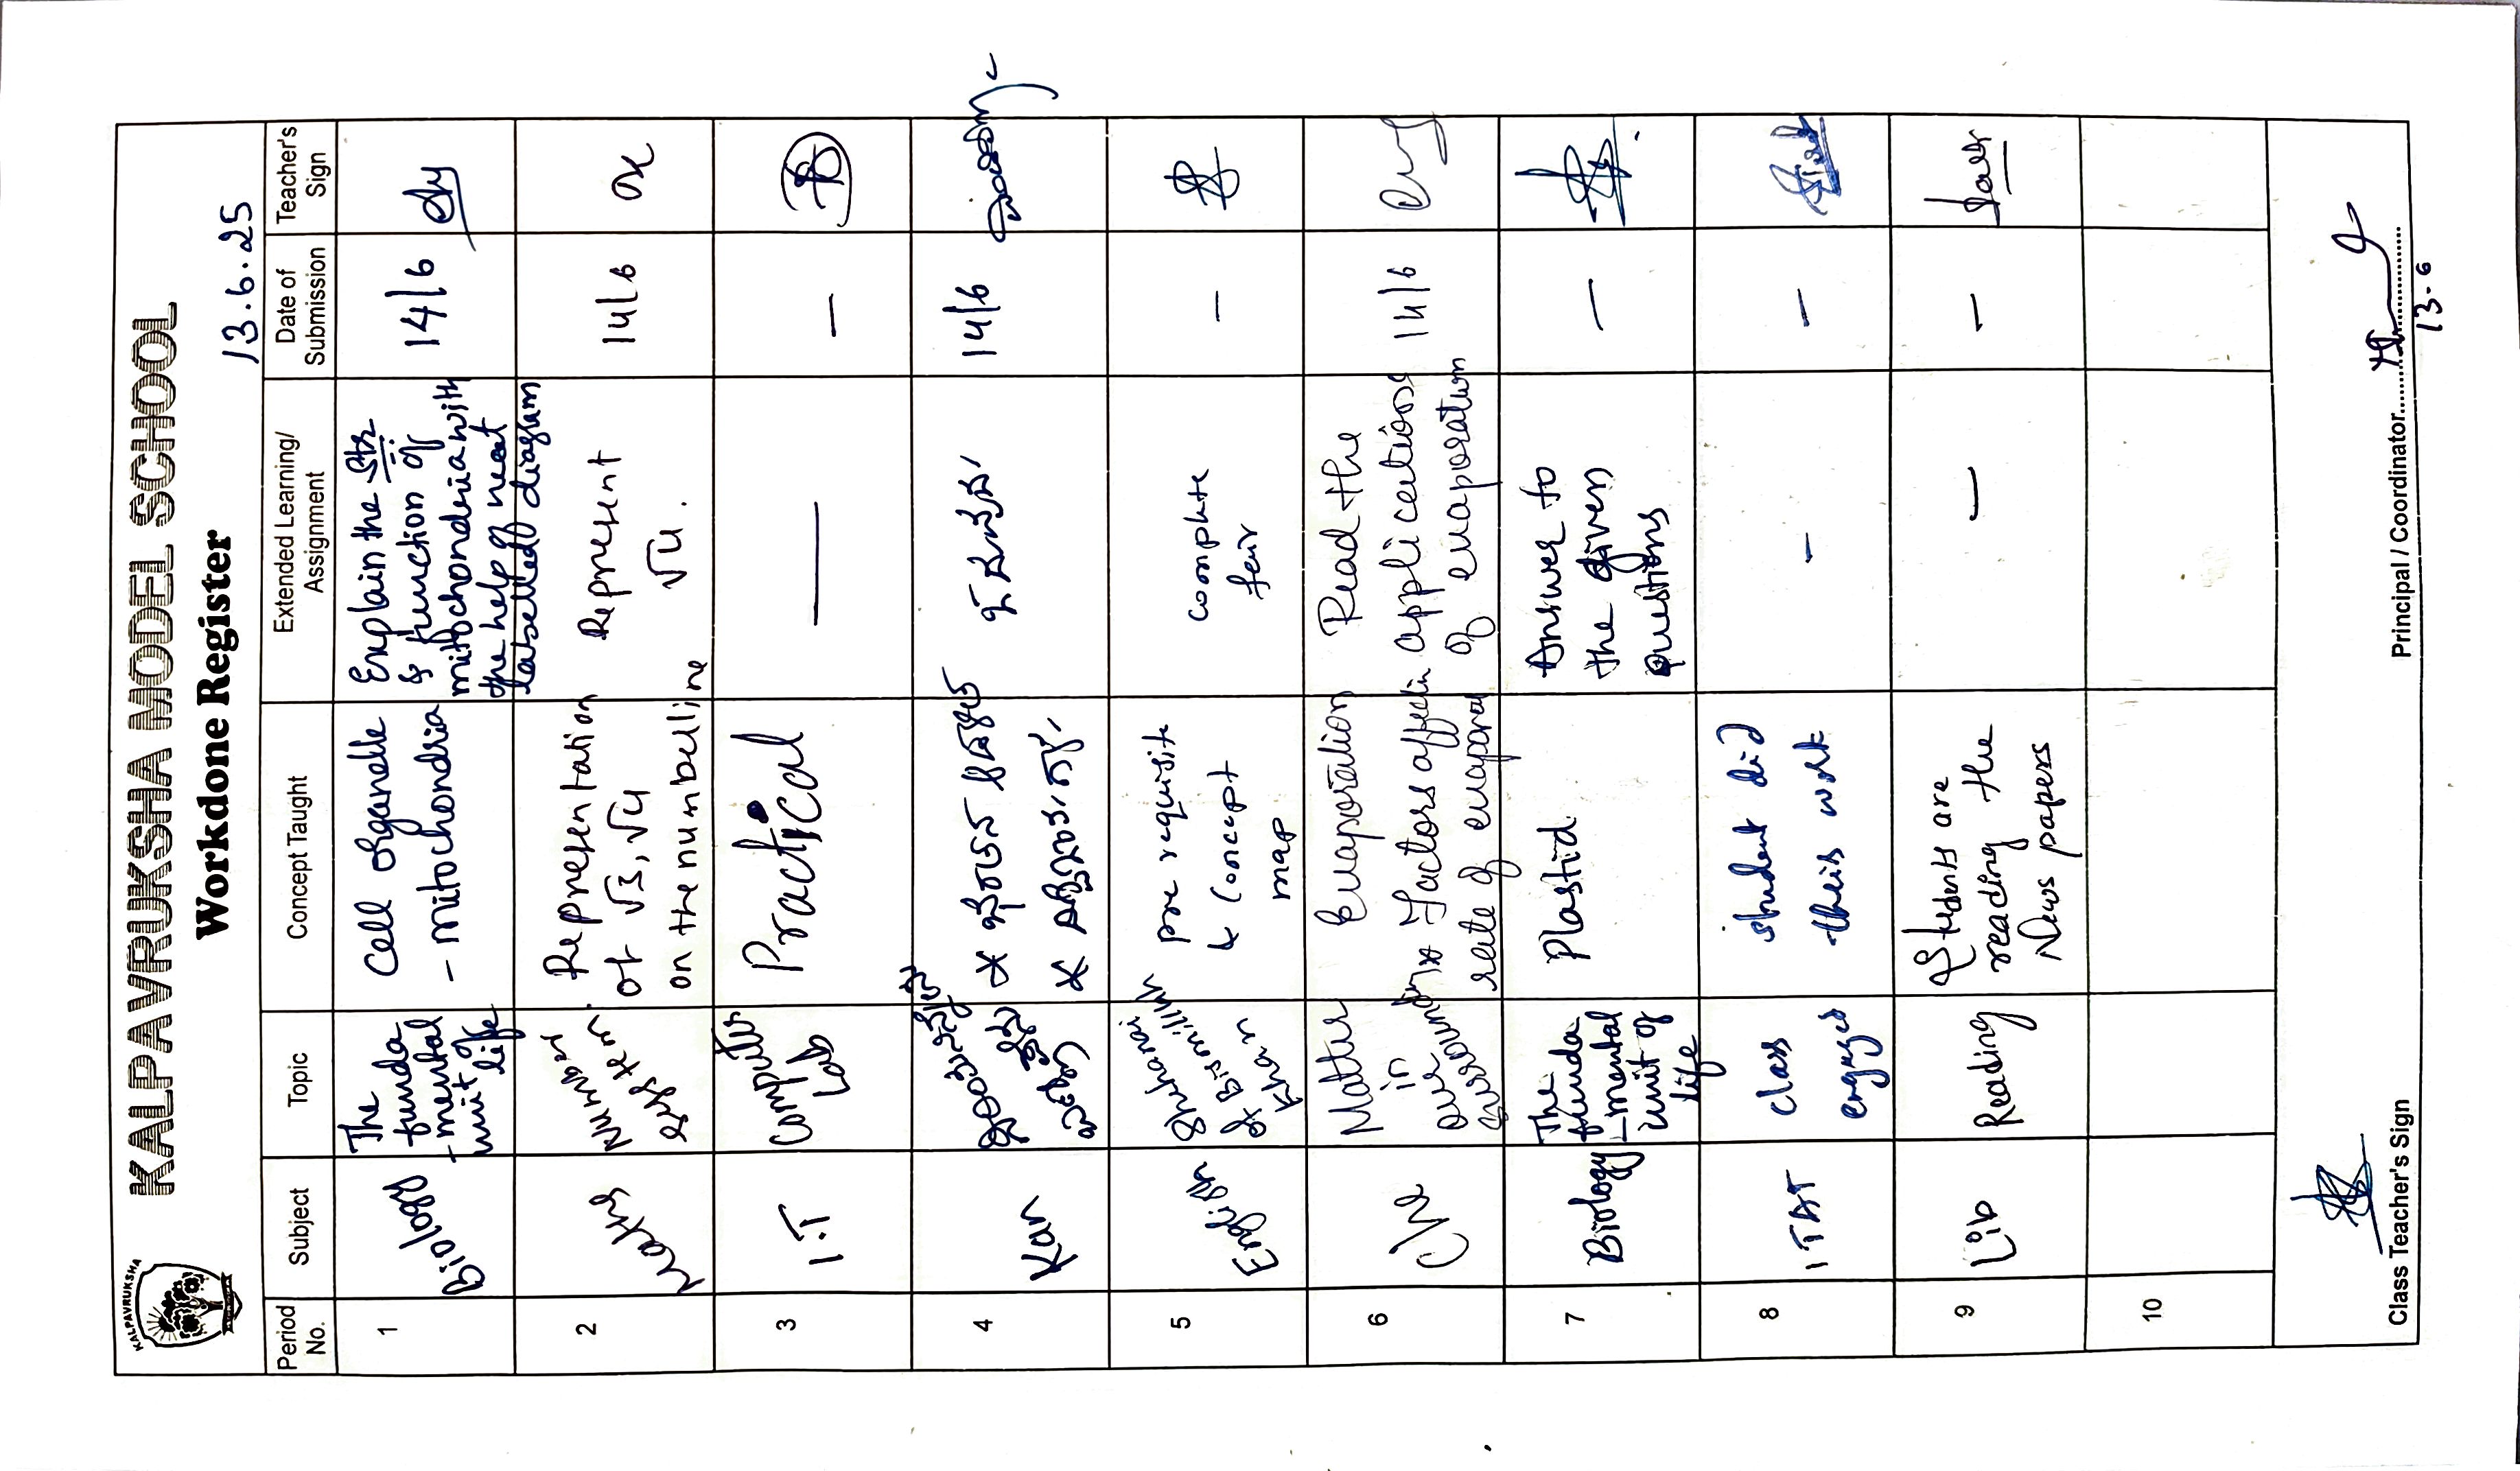 KALPAVRUKSHA
KALPAVRUKSHA MODEL SCHOOL
Workdone Register
13.6.25
Period No. Subject Topic Concept Taught Extended Learning/ Assignment Date of Submission Teacher's Sign
1 Biology The funda-mental unit of life Cell organelle - mitochondria Explain the str & function of mitochondria with the help of neat labelled diagram 14/6
2 Maths Number system Representation of √3, √4 on the number line Represent √4. 14/6
3 I.T Computer Lab Practical — —
4 Kan 14/6
5 English Shehanai of Bismillah Khan pre requisite & Concept map complete fair —
6 Che Matter in our surrounding Evaporation * Factors affectin rate of evapora Read the applications of evaporation 14/6
7 Biology The funda-mental unit of life Plastid Answer to the given questions —
8 class engaged student did their work - —
9 Lib Reading Students are reading the News papers — —
10
Class Teacher's Sign Principal / Coordinator
13.6